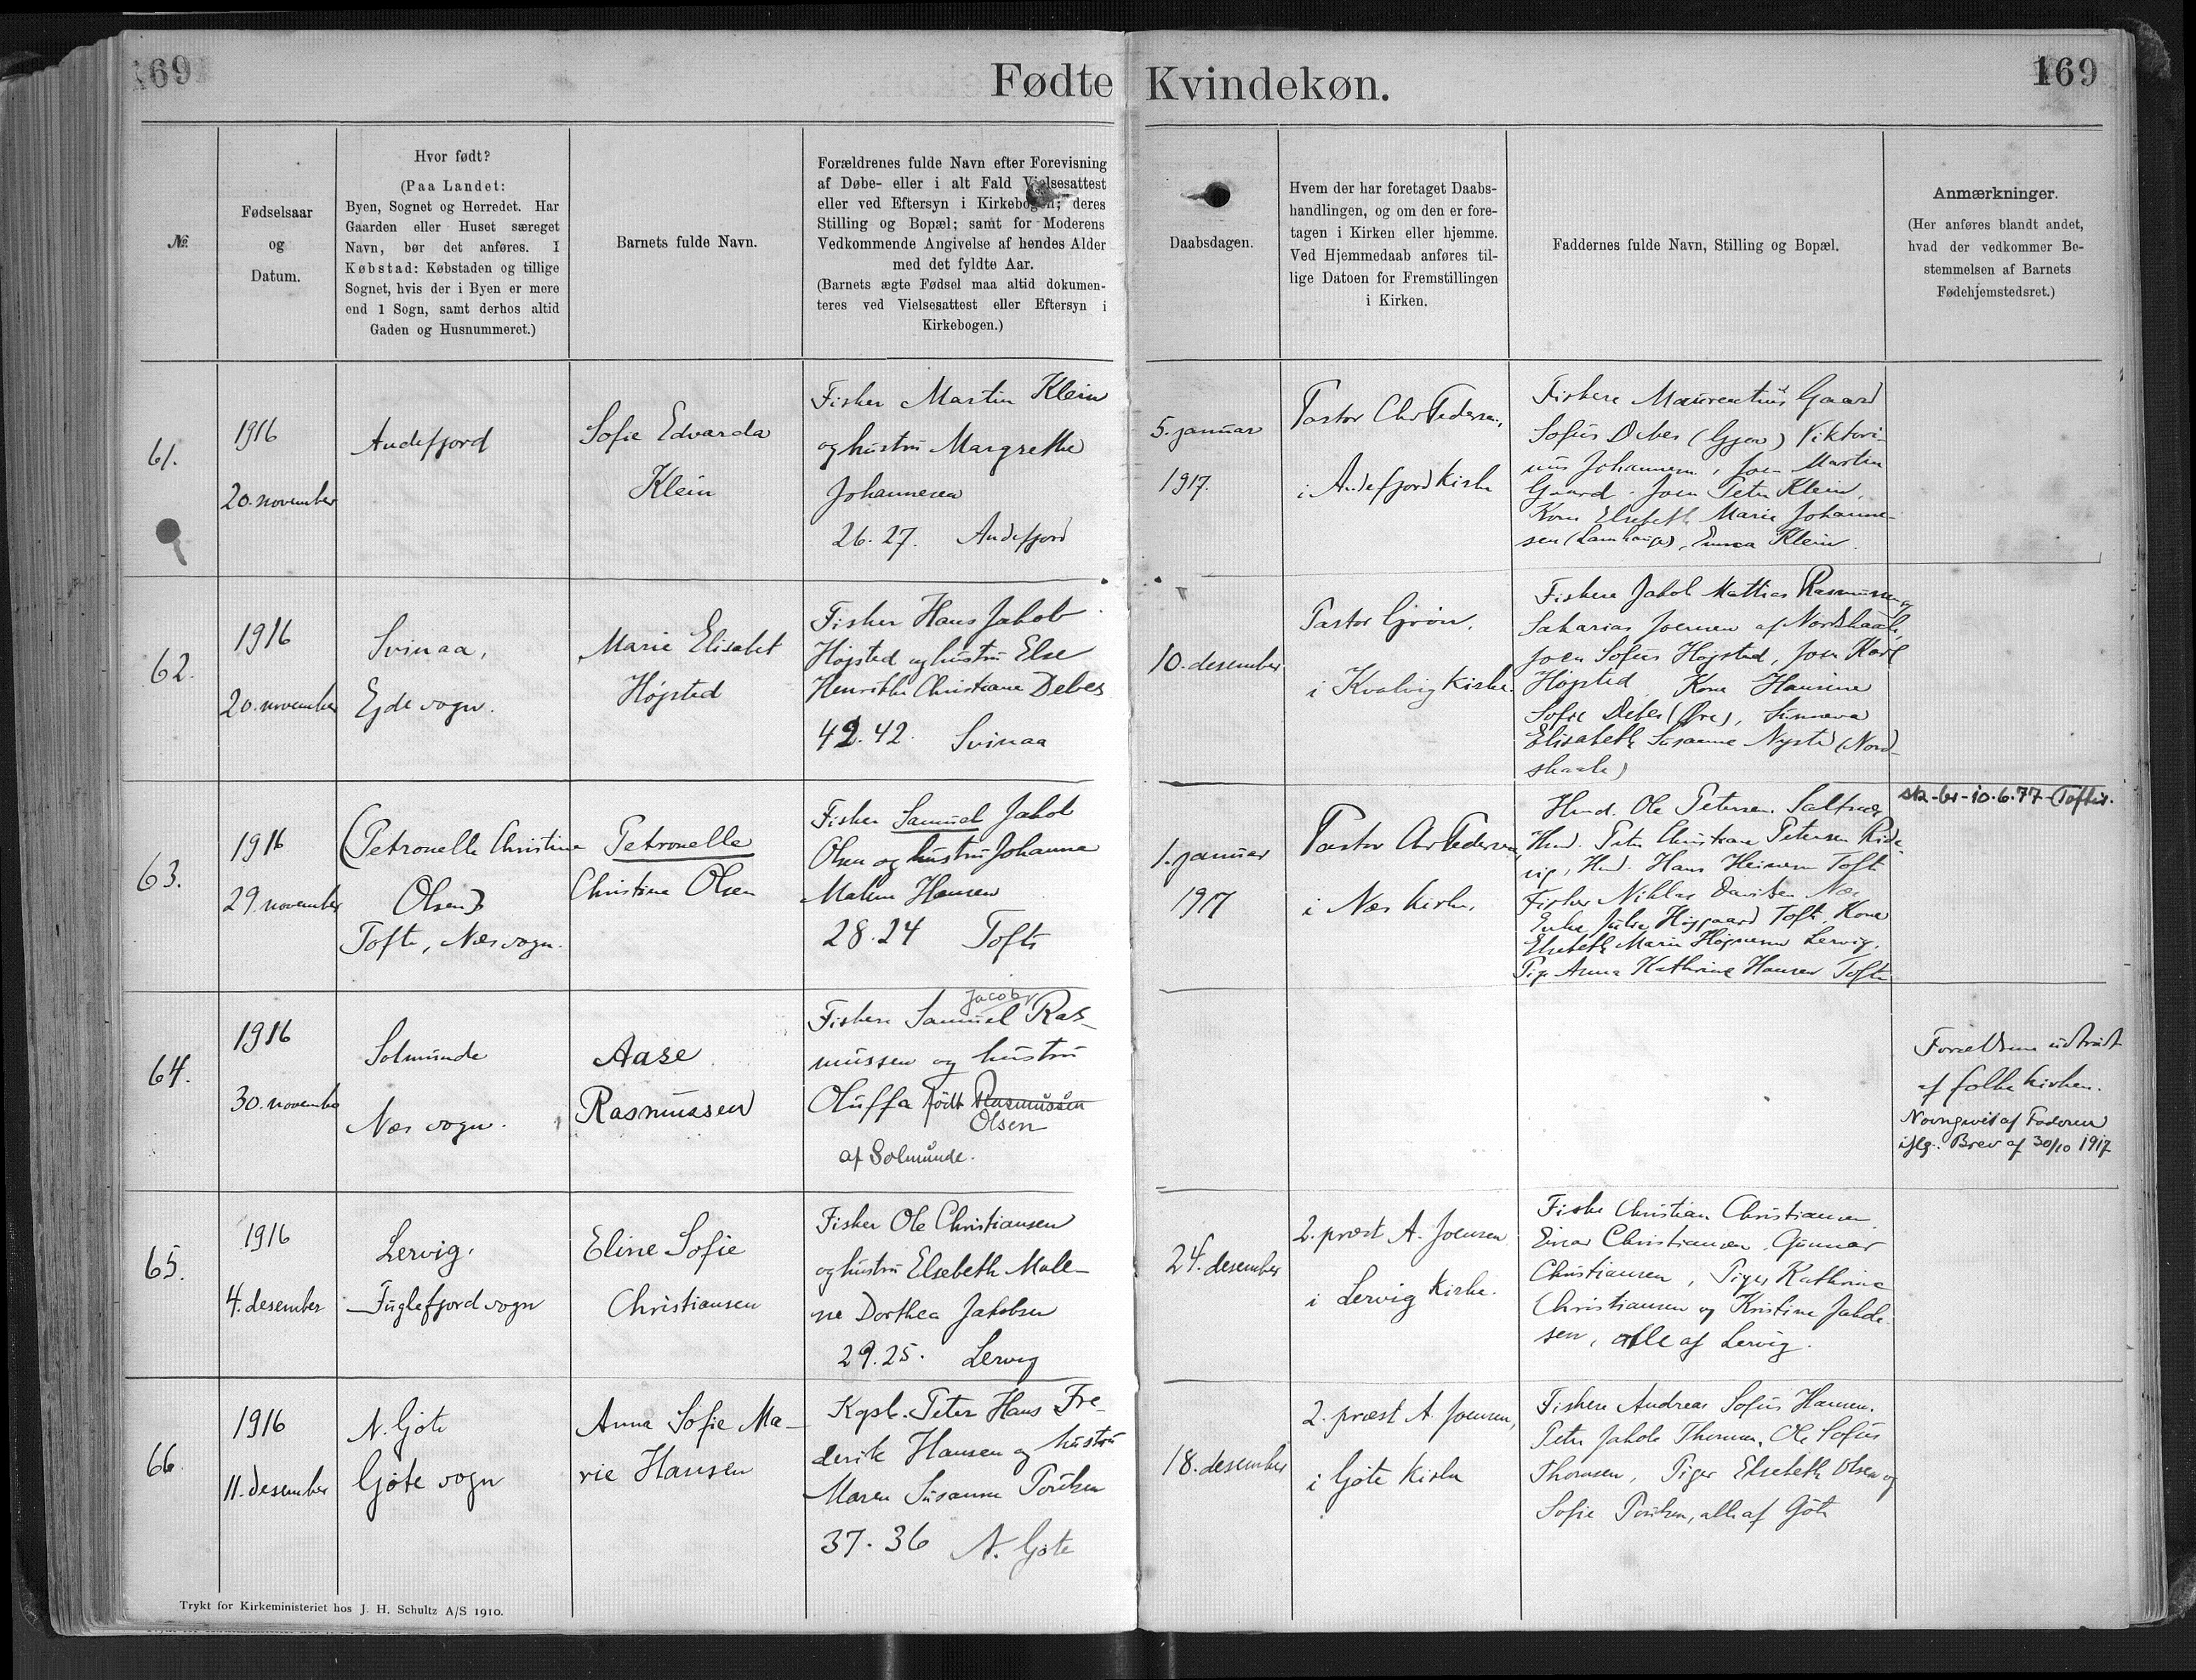 169
Fødte Kvindekøn.
169
№
Fødselsaar
og
Datum.
Hvor født?
(Paa Landet:
Byen, Sognet og Herredet. Har
Gaarden eller Huset særeget
Navn, bør det anføres. I
Købstad: Købstaden og tillige
Sognet, hvis der i Byen er mere
end 1 Sogn, samt derhos altid
Gaden og Husnummeret.)
Barnets fulde Navn.
Forældrenes fulde Navn efter Forevisning
af Døbe- eller i alt Fald Vielsesattest
eller ved Eftersyn i Kirkebogen; deres
Stilling og Bopæl; samt for Moderens
Vedkommende Angivelse af hendes Alder
med det fyldte Aar.
(Barnets ægte Fødsel maa altid dokumen-
teres ved Vielsesattest eller Eftersyn i
Kirkebogen.)
Daabsdagen.
Hvem der har foretaget Daabs-
handlingen, og om den er fore-
tagen i Kirken eller hjemme.
Ved Hjemmedaab anføres til-
lige Datoen for Fremstillingen
i Kirken.
Faddernes fulde Navn, Stilling og Bopæl.
Anmærkninger.
(Her anføres blandt andet,
hvad der vedkommer Be-
stemmelsen af Barnets
Fødehjemstedsret.)
61.
1916
20. november
Andefjord
Sofie Edvarda
Klein
Fisker Martin Klein
og hustru Margrethe
Johannesen
26. 27. Andefjord
5. januar
1917.
Pastor Chr Pedersen,
i Andefjord kirke
Fiskere Maurentius Gaard
Sofus Debes (Gjov) Viktori-
nus Johannesen, Joen Martin
Gaard. Joen Peter Klein,
Kone Elsebeth Marie Johanne-
sen (Lamhauge), Emma Klein.
62.
1916
20. november
Svinaa,
Ejde sogn.
Marie Elisabet
Højsted
Fisker Hans Jakob
Højsted og hustru Else
Henrikke Christiane Debes
42. 42. Svinaa
10. desember
Pastor Grön,
i Kvalvig kirke.
Fiskere Jakob Mattias Rasmussen og
Sakarias Joensen af Nordskaale,
Joen Sofus Højsted, Joen Karl
Højsted, Kone Hansine
Sofie Debes (Øre), Sunneva
Elisabeth Susanne Nysted (Nord-
skaale)
63.
1916
29. november
(Petronelle Christine
Olsen)
Tofte, Næs sogn.
Petronelle
Christine Olsen
Fisker Samuel Jakob
Olsen og hustru Johanne
Malene Hansen
28. 24 Tofte
1. januar
1917
Pastor Chr Pedersen,
i Næs kirke.
Hmd. Ole Petersen Saltnæs
Hmd. Peter Christian Petersen Ride-
vig, Hmd. Hans Heinesen Tofte
Fisker Niklas Davidsen Næs
Enke Julie Højgaard Tofte, Kone
Elsebeth Marie Højnesen Lervig,
Pige Anna Kathrine Hansen Tofte
10.6.77
64.
1916
30. november
Solmunde
Næs sogn.
Aase
Rasmussen
Jacob
Fisker Samuel Ras-
mussen og hustru
Oluffa født Rasmussen
Olsen
af Solmunde.
Forældrene udtraadt
af folkekirken.
Navngivet af Faderen
iflg. Brev af 30/10 1917
65.
1916
4. desember
Lervig,
Fuglefjord sogn
Eline Sofie
Christiansen
Fisker Ole Christiansen
og hustru Elsebeth Male-
ne Dorthea Jakobsen
29. 25. Lervig
24. desember
2. præst A. Joensen
i Lervig kirke.
Fisker Christian Christiansen
Einar Christiansen, Gunnar
Christiansen, Piger Kathrine
Christiansen og Kristine Jakob-
sen, alle af Lervig.
66.
1916
11. desember
N. Gjøte
Gjøte sogn
Anna Sofie Ma-
rie Hansen
Kgsb. Peter Hans Fre-
derik Hansen og hustru
Maren Susanne Poulsen
37. 36 N. Gjøte
18. desember
2. præst A. Joensen,
i Gjøte kirke
Fiskere Andreas Sofus Hansen,
Peter Jakob Thomsen, Ole Sofus
Thomsen, Piger Elsebeth Olsen og
Sofie Poulsen, alle af Gjøte
Trykt for Kirkeministeriet hos J. H. Schultz A/S 1910.